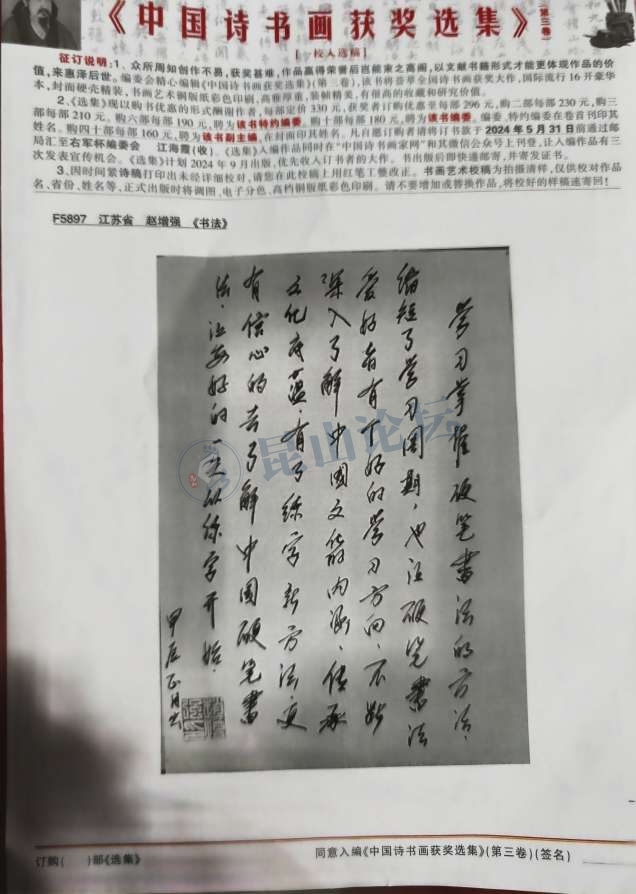 《中国诗书画获奖选集》(第三卷)
[一校入选稿]
征订说明:1、众所周知创作不易,获奖甚难,作品赢得荣誉后岂能束之高阁,以文献书籍形式才能更体现作品的价
值,来惠泽后世。编委会精心编辑《中国诗书画获奖选集》(第三卷),该书将荟萃全国诗书画获奖大作,国际流行16开豪华
本,封面硬壳精装,书画艺术铜版纸彩色印刷,高雅厚重,装帧精美,有很高的收藏和研究价值。
2、《选集》现以购书优惠的形式酬谢作者,每部定价330元,获奖者订购优惠至每部296元,购二部每部230元,购三
部每部210元,购六部每部190元,聘为该书特约编委。购十部每部180元,聘为该书编委。编委、特约编委在卷首刊印其
姓名。购四十部每部160元,聘为该书副主编,在封面印其姓名。凡自愿订购者请将订书款于2024年5月31日前通过邮
局汇至右军杯编委会 江海霞(收)。《选集》入编作品同时在“中国诗书画家网”和其微信公众号上刊登,让入编作品有三
次发表宣传机会。《选集》计划2024年9月出版,优先收入订书者的大作。书出版后即快递邮寄,并寄发证书。
3、因时间紧诗稿打印出未经详细校对,请您在此校稿上用红笔工整改正。书画艺术校稿为拍摄清样,仅供校对作品
名、省份、姓名等,正式出版时将调图、电子分色、高档铜版纸彩色印刷。请不要增加或替换作品,将校好的样稿速寄回!
F5897 江苏省 赵增强 《书法》
学习掌握硬笔书法的方法,
缩短了学习周期,也让硬笔书法
爱好者有了好的学习方向,不断
深入了解中國文化的内涵,传承
文化底蕴,有了练字新方法,更
有信心的去了解中国硬笔书
法,让美好的一天从练字开始。
甲辰正月
昆山论坛
订购( )部《选集》
同意入编《中国诗书画获奖选集》(第三卷)(签名)